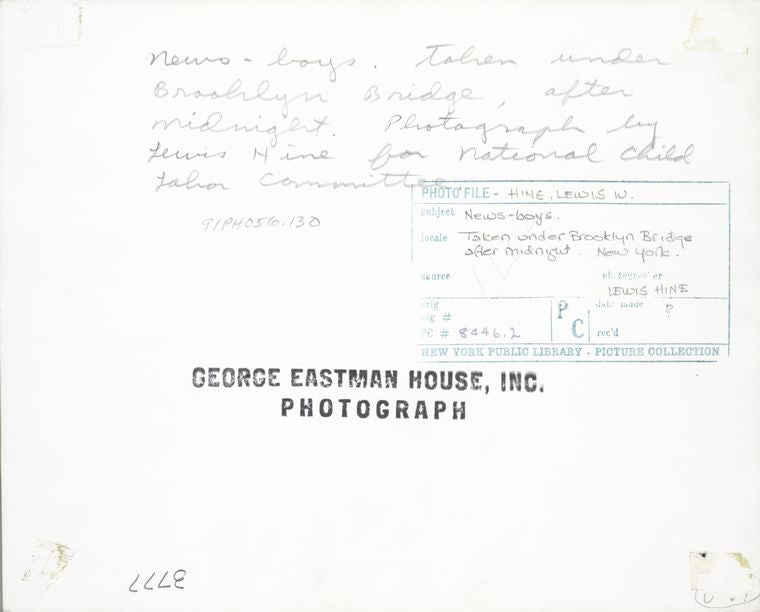 News-boys. Taken under
Brooklyn Bridge, after
midnight. Photograph by
Lewis Hine for National Child
Labor Committee
91PH056.130
PHOTO FILE - HINE, LEWIS W.
subject News-boys.
locale Taken under Brooklyn Bridge
after midnight. New York.
source photographer
LEWIS HINE
orig date made ?
neg #
PC # 8446.2 PC rec'd
NEW YORK PUBLIC LIBRARY - PICTURE COLLECTION
GEORGE EASTMAN HOUSE, INC.
PHOTOGRAPH
3777